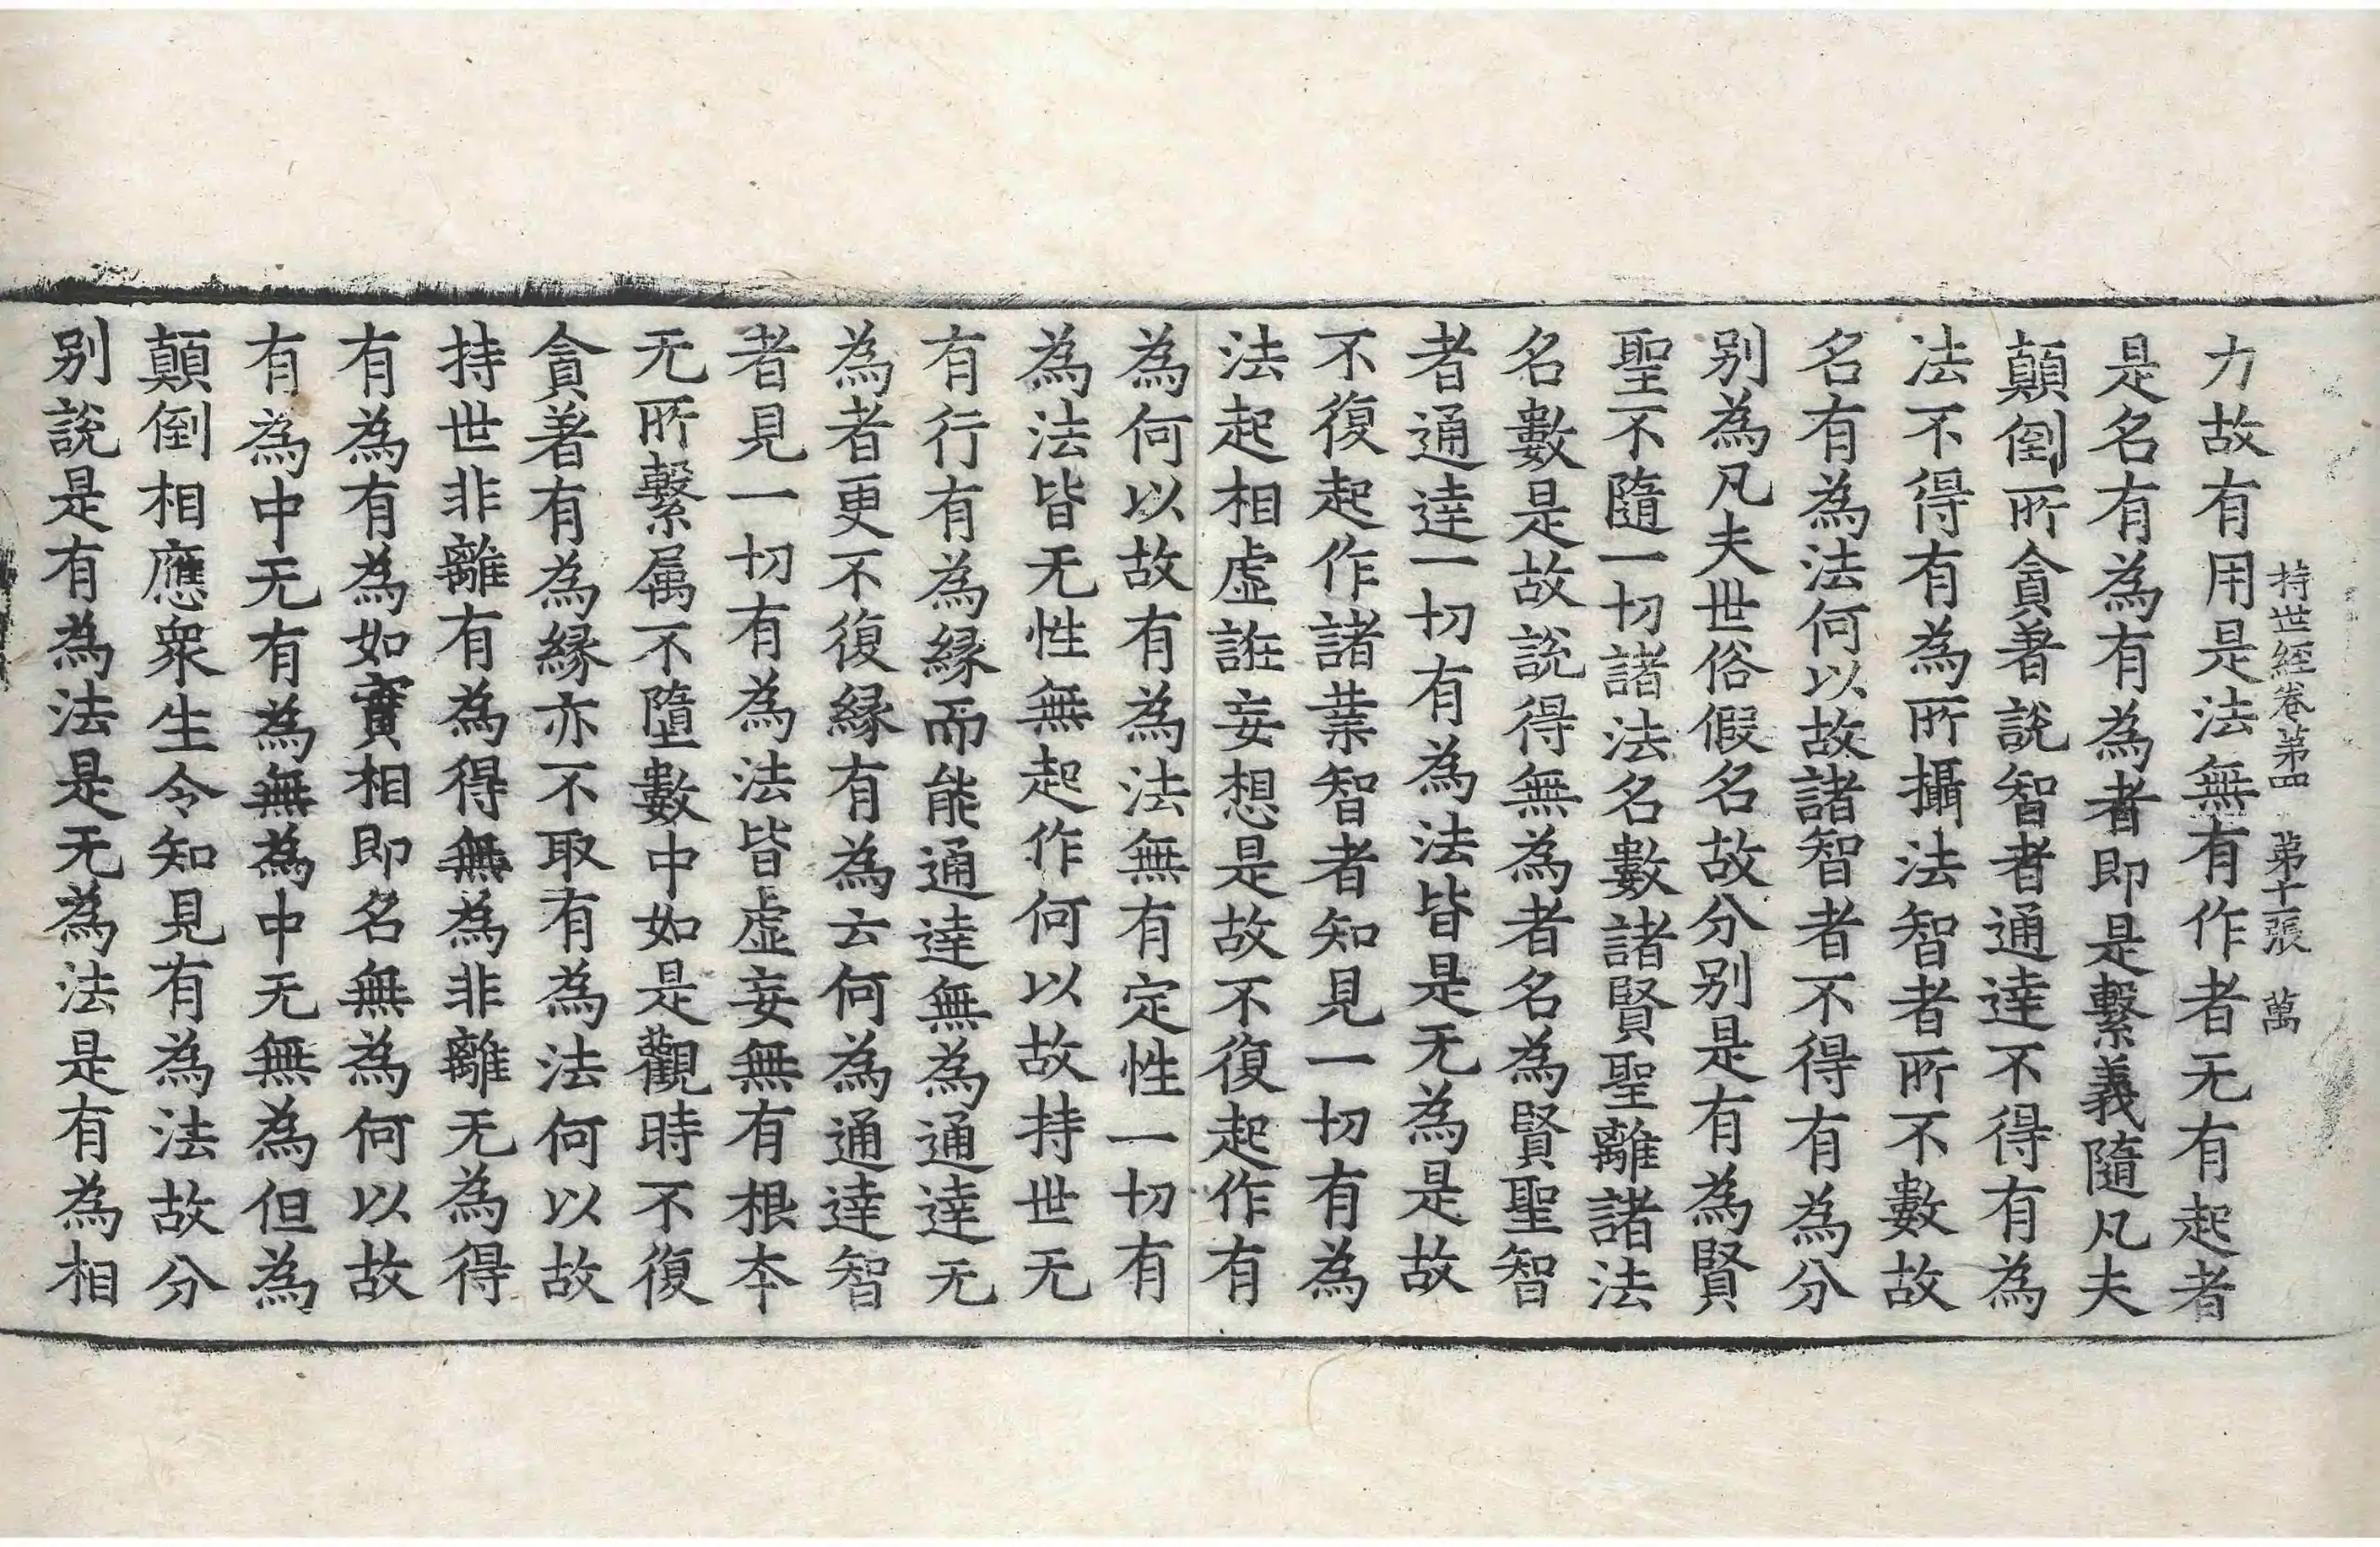 持世經卷第四 第十張 萬
力故有用是法無有作者无有起者
是名有為有為者即是繫義隨凡夫
顛倒所貪著說智者通達不得有為
法不得有為所攝法智者所不數故
名有為法何以故諸智者不得有為分
别為凡夫世俗假名故分别是有為賢
聖不隨一切諸法名數諸賢聖離諸法
名數是故說得無為者名為賢聖智
者通達一切有為法皆是无為是故
不復起作諸業智者知見一切有為
法起相虛誑妄想是故不復起作有
為何以故有為法無有定性一切有
為法皆无性無起作何以故持世无
有行有為緣而能通達無為通達无
為者更不復緣有為云何為通達智
者見一切有為法皆虛妄無有根本
无所繫属不墮數中如是觀時不復
貪著有為緣亦不取有為法何以故
持世非離有為得無為非離无為得
有為有為如實相即名無為何以故
有為中无有為無為中无無為但為
顛倒相應衆生令知見有為法故分
别說是有為法是无為法是有為相